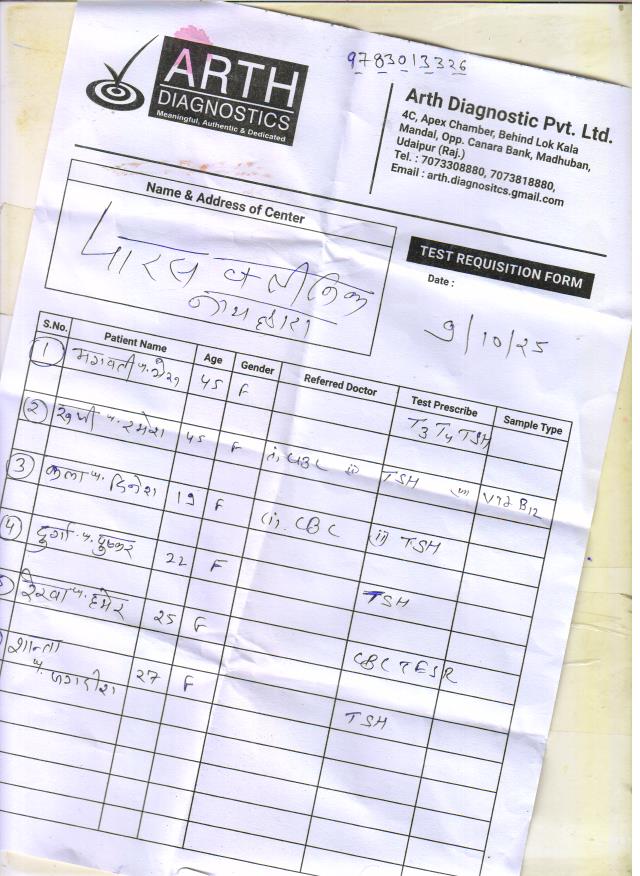 9783013326
ARTH
DIAGNOSTICS
Meaningful, Authentic & Dedicated
Arth Diagnostic Pvt. Ltd.
4C, Apex Chamber, Behind Lok Kala
Mandal, Opp. Canara Bank, Madhuban,
Udaipur (Raj.)
Tel. : 7073308880, 7073818880,
Email : arth.diagnositcs.gmail.com
Name & Address of Center
पारस क्लीनिक
नाथद्वारा
TEST REQUISITION FORM
Date :
9/10/25
S.No. Patient Name Age Gender Referred Doctor Test Prescribe Sample Type
1 45 F T3 T4 TSH
2 प. रमेश 45 F i. CBC ii TSH Vit B12
3 कला प. दिनेश 19 F (i). CBC (ii) TSH
4 दुर्गा प. पुष्कर 22 F TSH
रेखा प. 25 F CBC ESR
शान्ता
प. जगदीश 27 F TSH